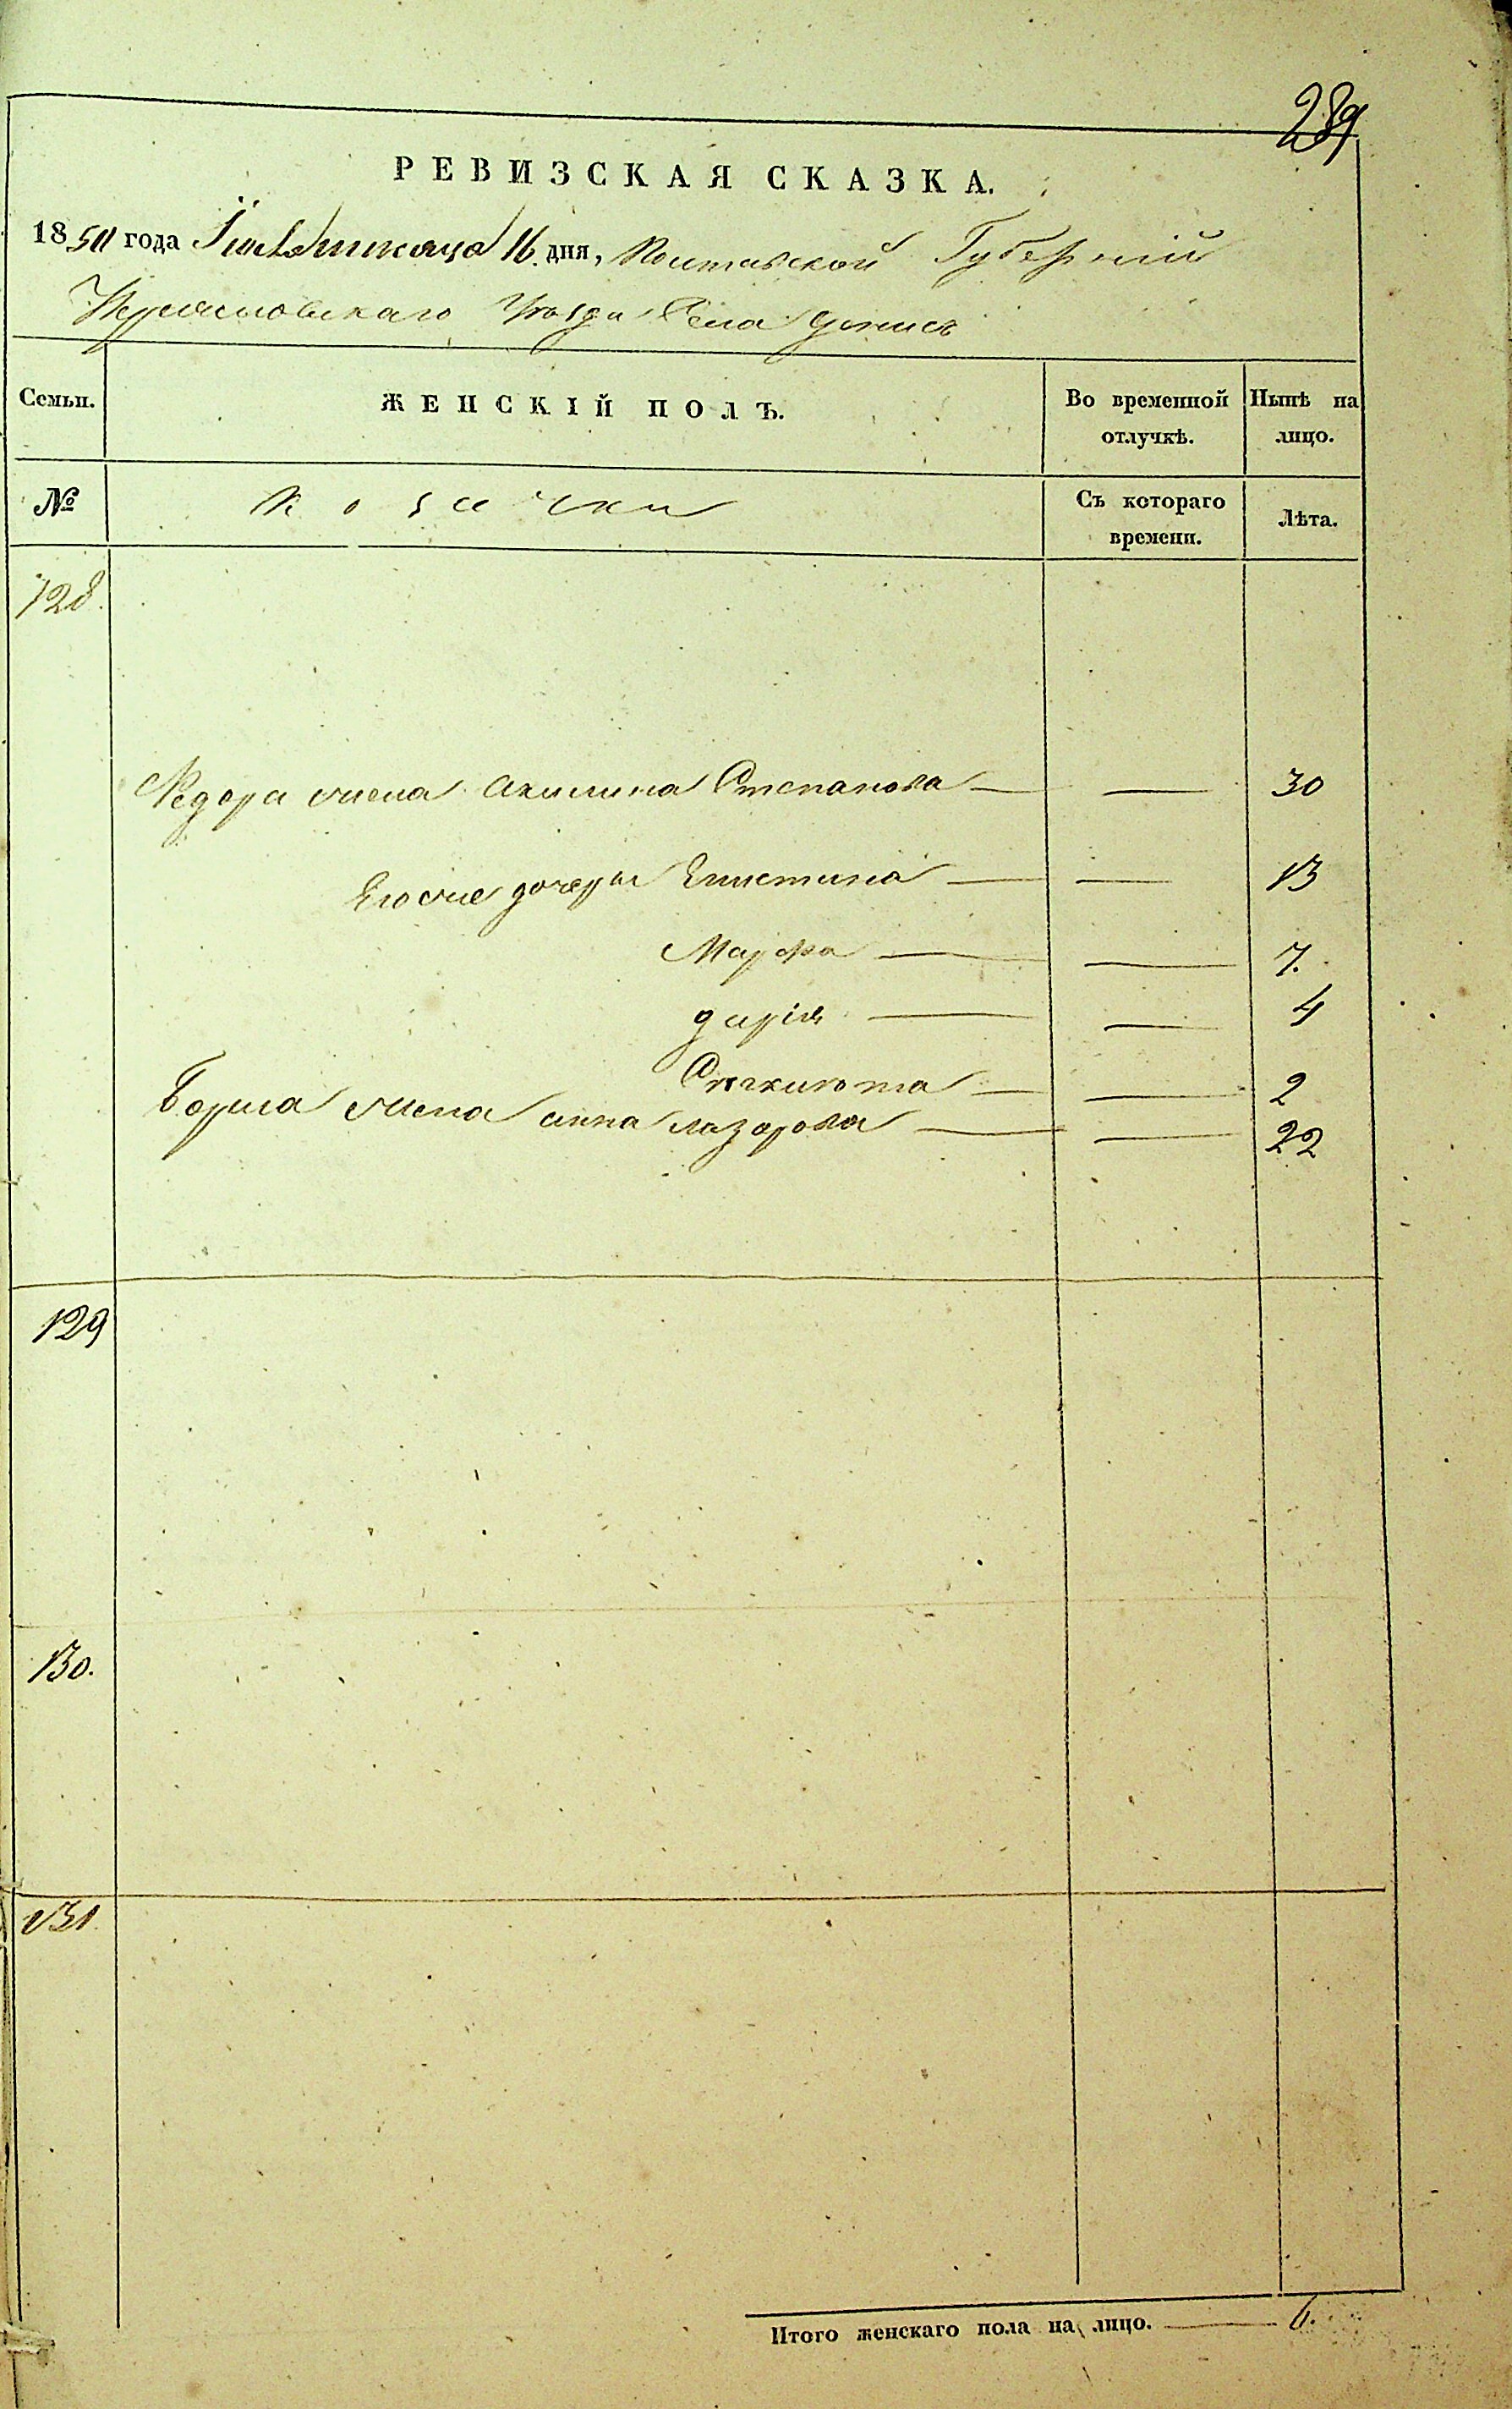 289
РЕВИЗСКАЯ СКАЗКА.
1850 года 16 дня, Полтавской Губерній
Уѣзда Села Денисъ
Семьи.
ЖЕНСКІЙ ПОЛЪ.
Во временной отлучкѣ.
Нынѣ на лицо.
№
козачки
Съ котораго времени.
Лѣта.
128.
Федора жена Акилина Степанова — — 30
Его же дочеры Епистина — — 13
Марфа — — 7.
дарія — — 4
— — 2
Бориса жена анна лазорова — — 22
129
130.
131.
Итого женскаго пола на лицо. — 6.